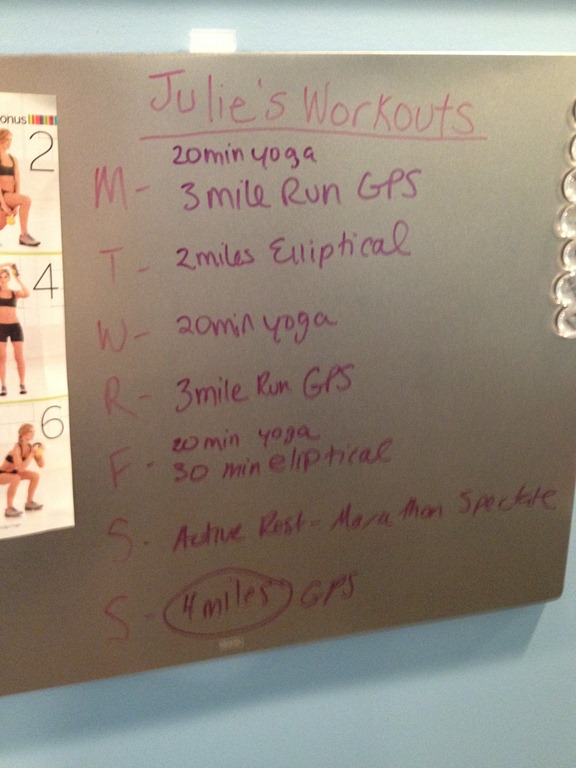 Julie's Workouts
onus
2
4
6
20min yoga
M- 3mile Run GPS
T- 2miles Elliptical
W- 20min yoga
R- 3mile Run GPS
20 min yoga
F- 30 min eliptical
S- Active Rest - Marathon Spectate
S- 4miles GPS